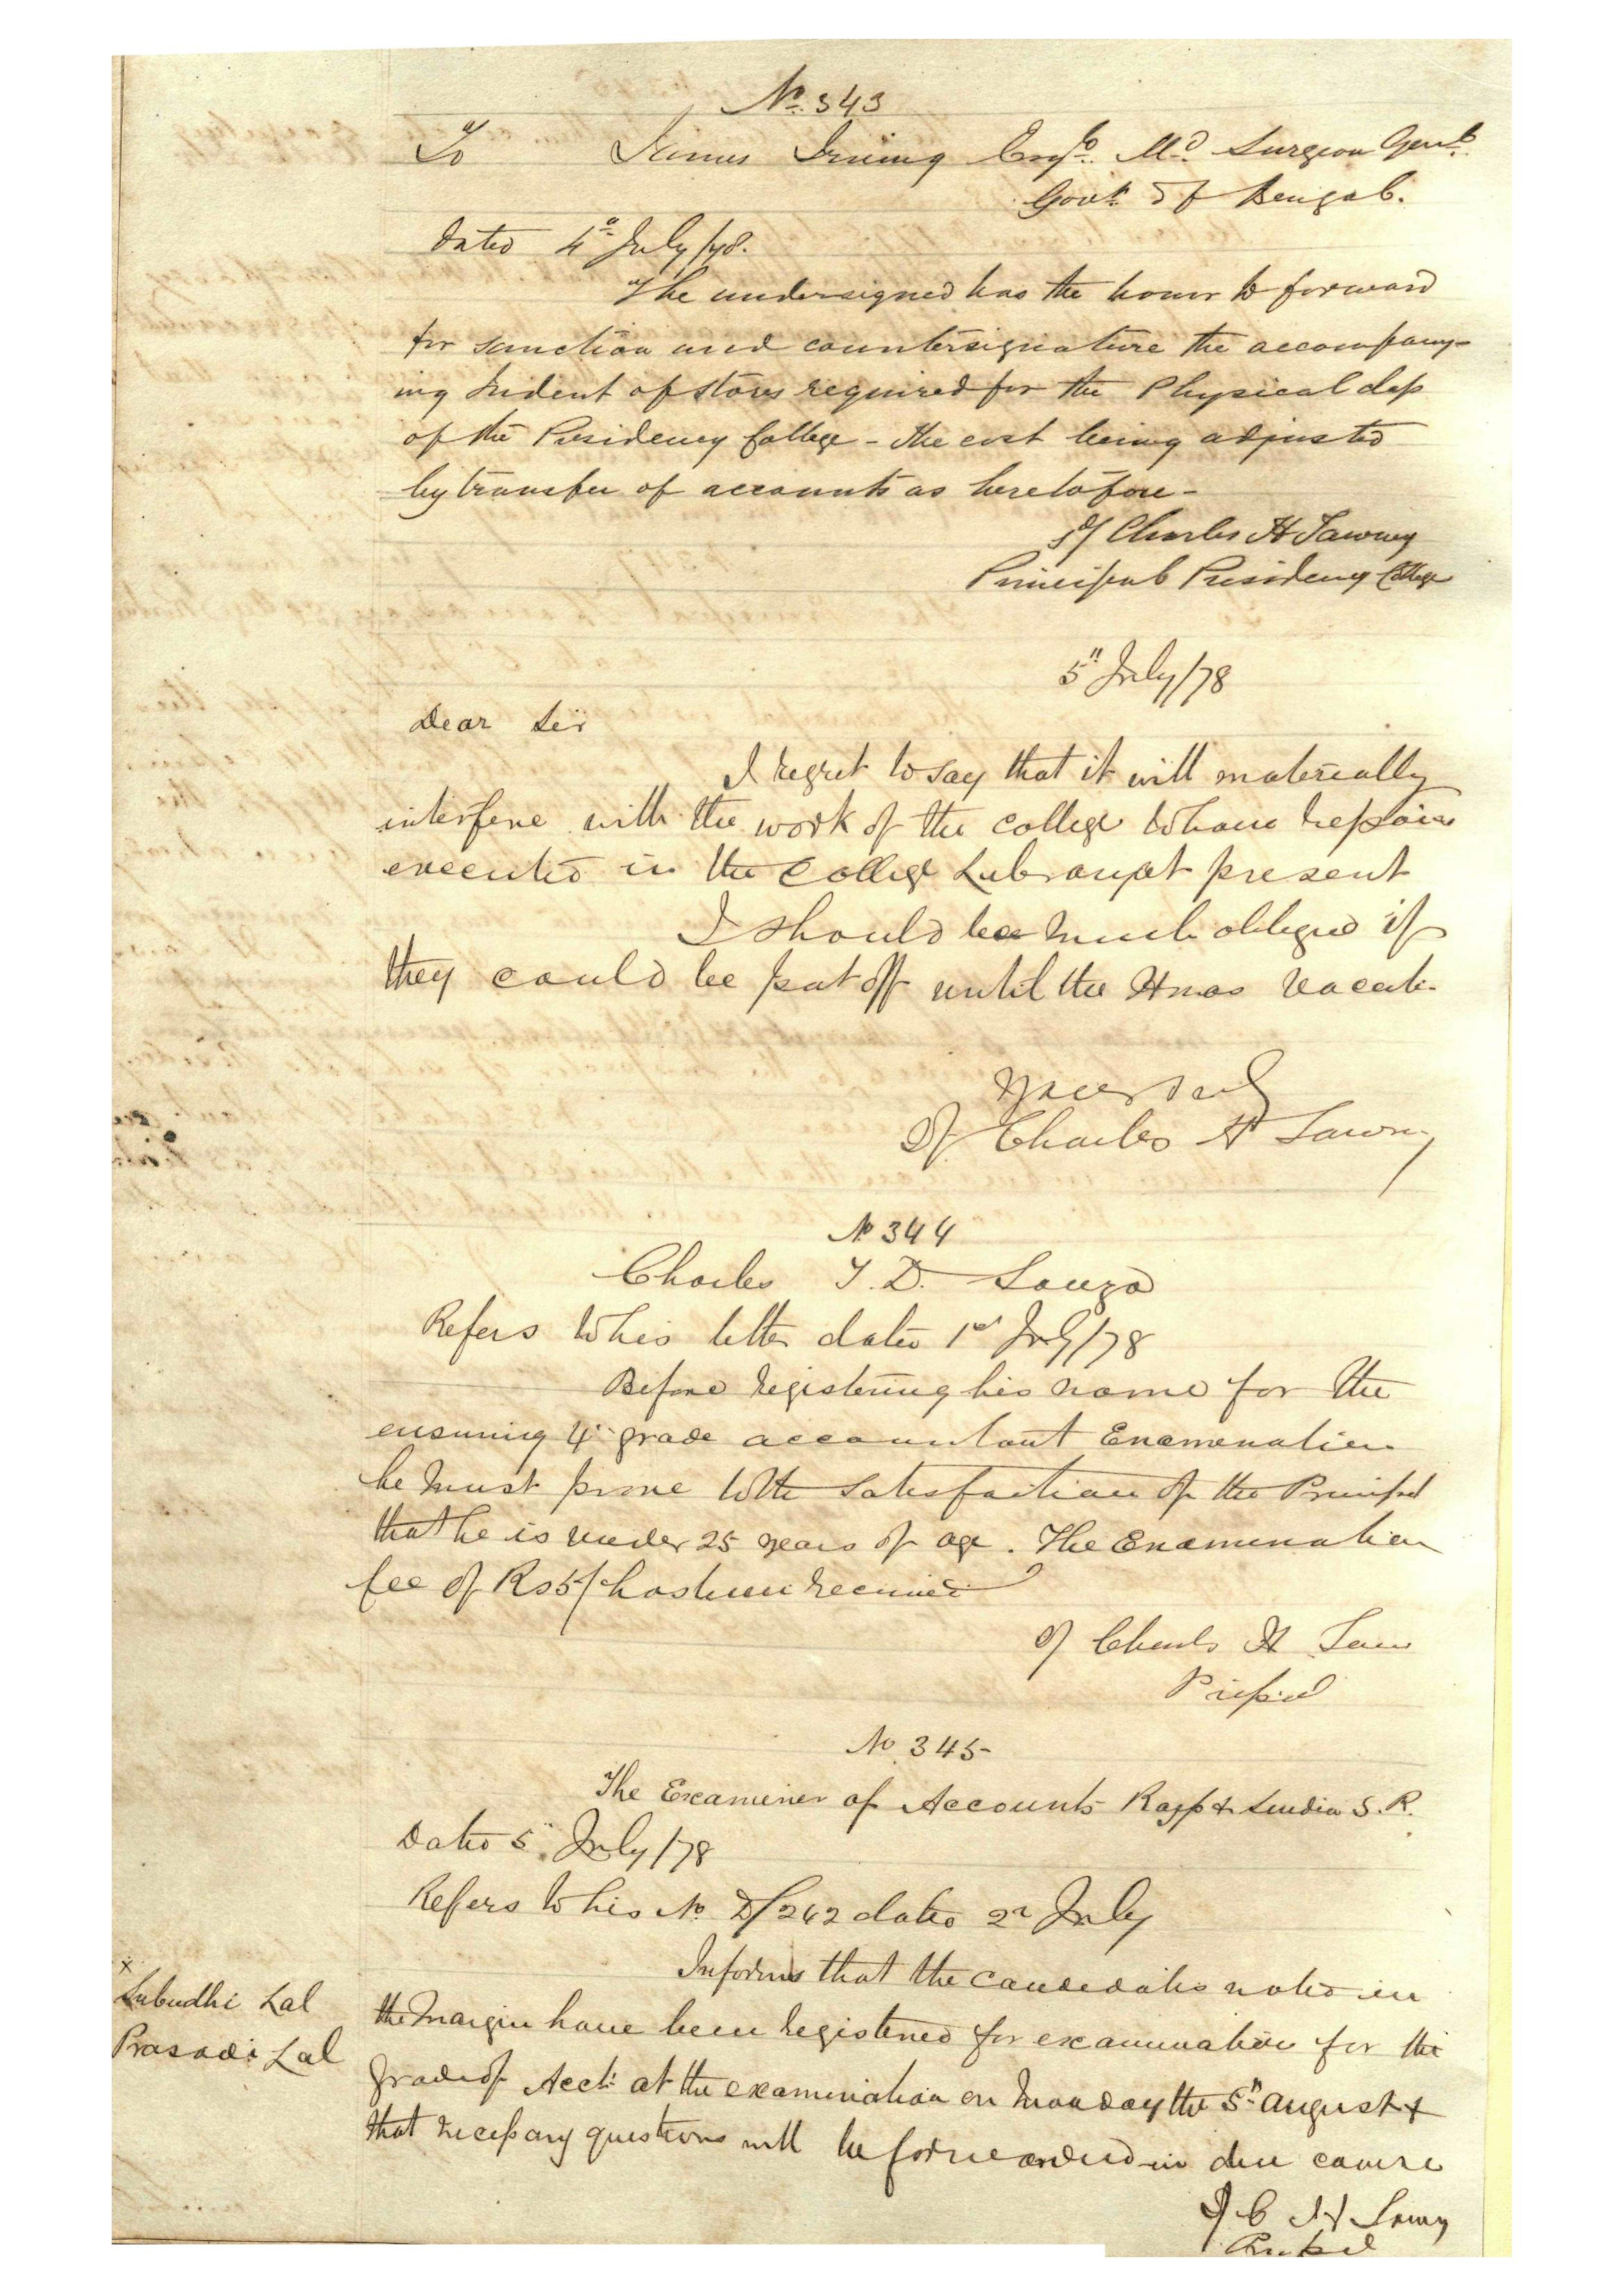 No. 343
To James Irving Esqr. M.D. Surgeon Genl.
Govt. of Bengal.
Dated 4th July /78.
The undersigned has the honor to forward
for sanction and countersignature the accompany-
ing Indent of stores required for the Physical dep
of the Presidency College - the cost being adjusted
by transfer of accounts as heretofore -
Sd/ Charles H Tawney
Principal Presidency College
5th July/78
Dear Sir
I regret to say that it will materially
interfere with the work of the college to have repairs
executed in the College Library at present
I should be much obliged if
they could be put off until the Xmas Vacatn.
Yours truly
Sd/ Charles H Tawney
No 344
Charles T. D. Souza
Refers to his letter dated 1st July/78
Before registering his name for the
ensuing 4th grade accountant Examination
he must prove to the satisfaction of the Principal
that he is under 25 years of age. The Examination
fee of Rs 5/ has been received
Sd/ Charles H Tawney
Principal
No 345
The Examiner of Accounts Rajp & India S. R.
Dated 5th July/78
Refers to his No. D/242 dated 2n July
Informs that the candidates noted in
x
Subudhi Lal
Prasadi Lal
the margin have been registered for examination for the
grade of Acct. at the examination on Monday the 5th August &
that necessary questions will be forwarded in due course
Sd C H Tawney
Principal